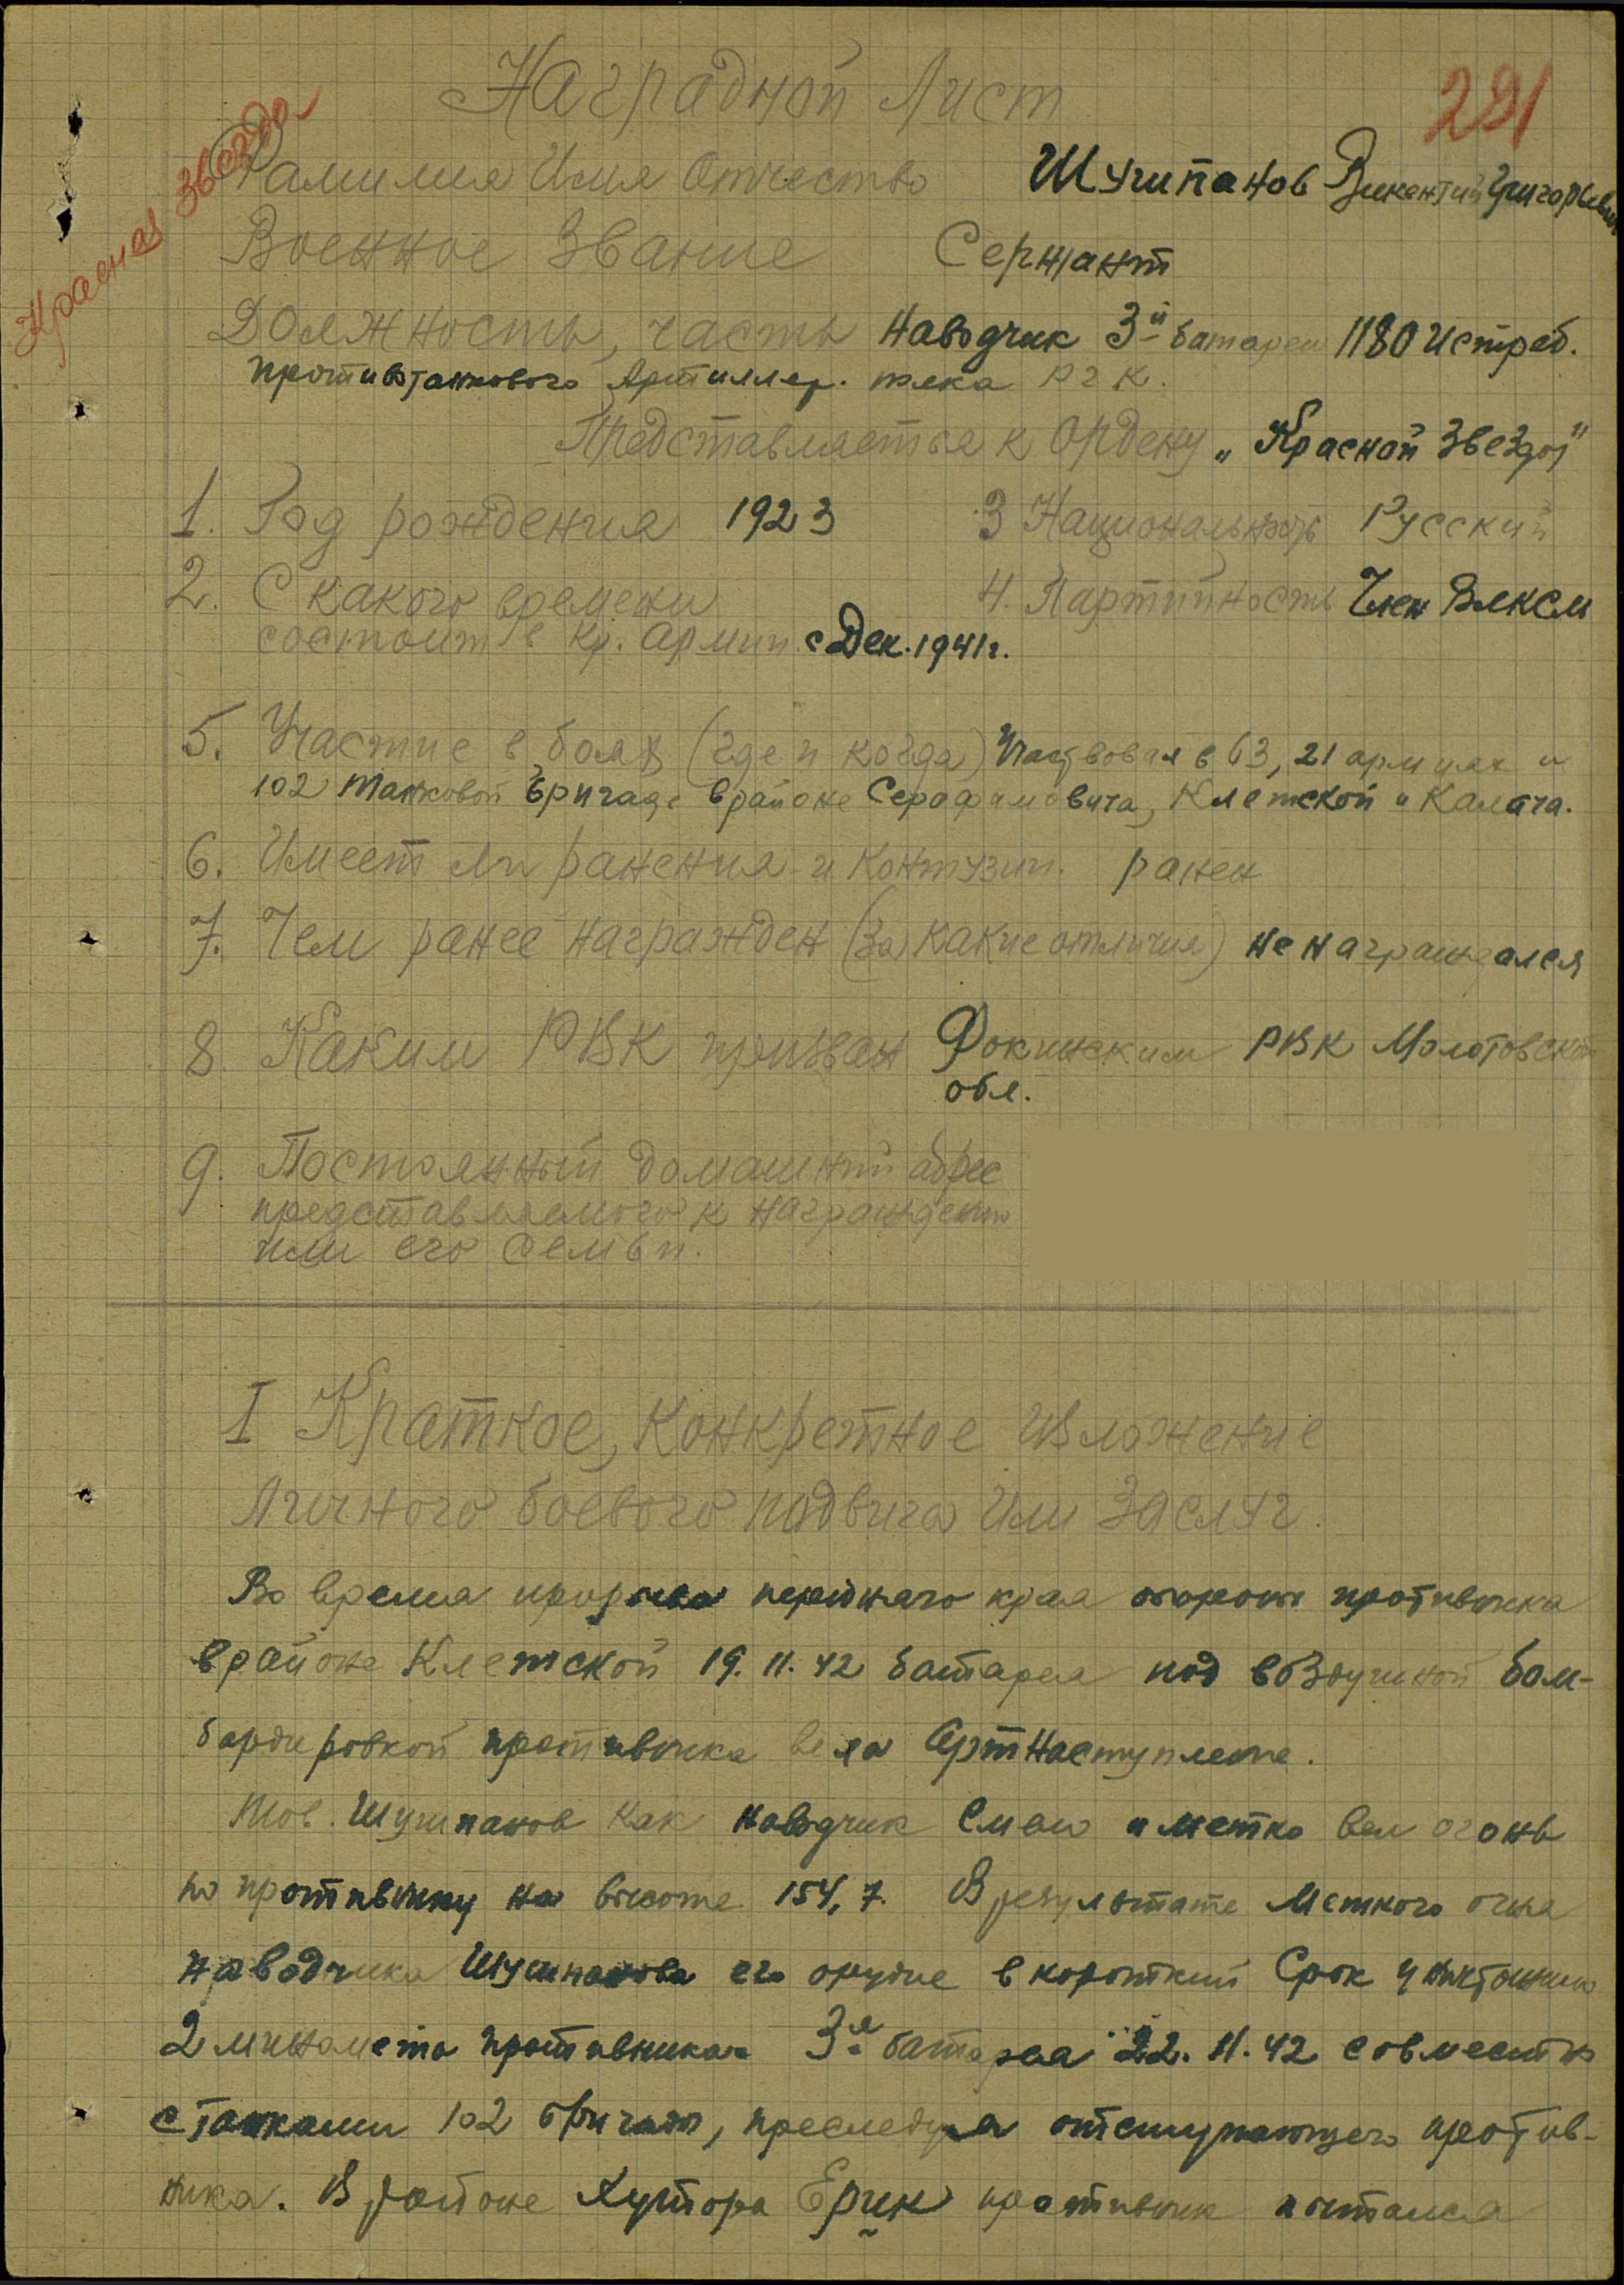 Наградной лист
291
Красная звезда
Фамилия Имя Отчество Шушпанов Викентий Григорьевич
Военное звание Сержант
Должность, часть наводчик 3й батареи 1180 истреб.
противотанкового Артиллер. полка РГК.
Представляется к ордену „Красной Звезды"
1. Год рождения 1923 3 Национальность Русский
2. С какого времени 4. Партийность Член ВЛКСМ
состоит в Кр. Армии с Дек. 1941г.
5. Участие в боях (где и когда) Участвовал в 63, 21 армиях и
102 танковой бригаде в районе Серафимовича, Клетской и Калача.
6. Имеет ли ранения и контузии. ранен
7. Чем ранее награжден (за какие отличия) не награждался
8. Каким РВК призван Фокинским РВК Молотовской
обл.
9. Постоянный домашний адрес
представляемого к награждению
или его семьи.
I Краткое, конкретное изложение
личного боевого подвига или заслуг.
Во время прорыва переднего края обороны противника
в районе Клетской 19.11.42 батарея под воздушной бом-
бардировкой противника вела Артнаступление.
Тов. Шушпанов как наводчик смело и метко вел огонь
по противнику на высоте 154,7. В результате меткого огня
наводчика Шушпанова его орудие в короткий срок уничтожило
2 миномета противника. 3я батарея 22.11.42 совместно
с танками 102 бригады, преследуя отступающего против-
ника. В районе Хутора Ерик противник пытался